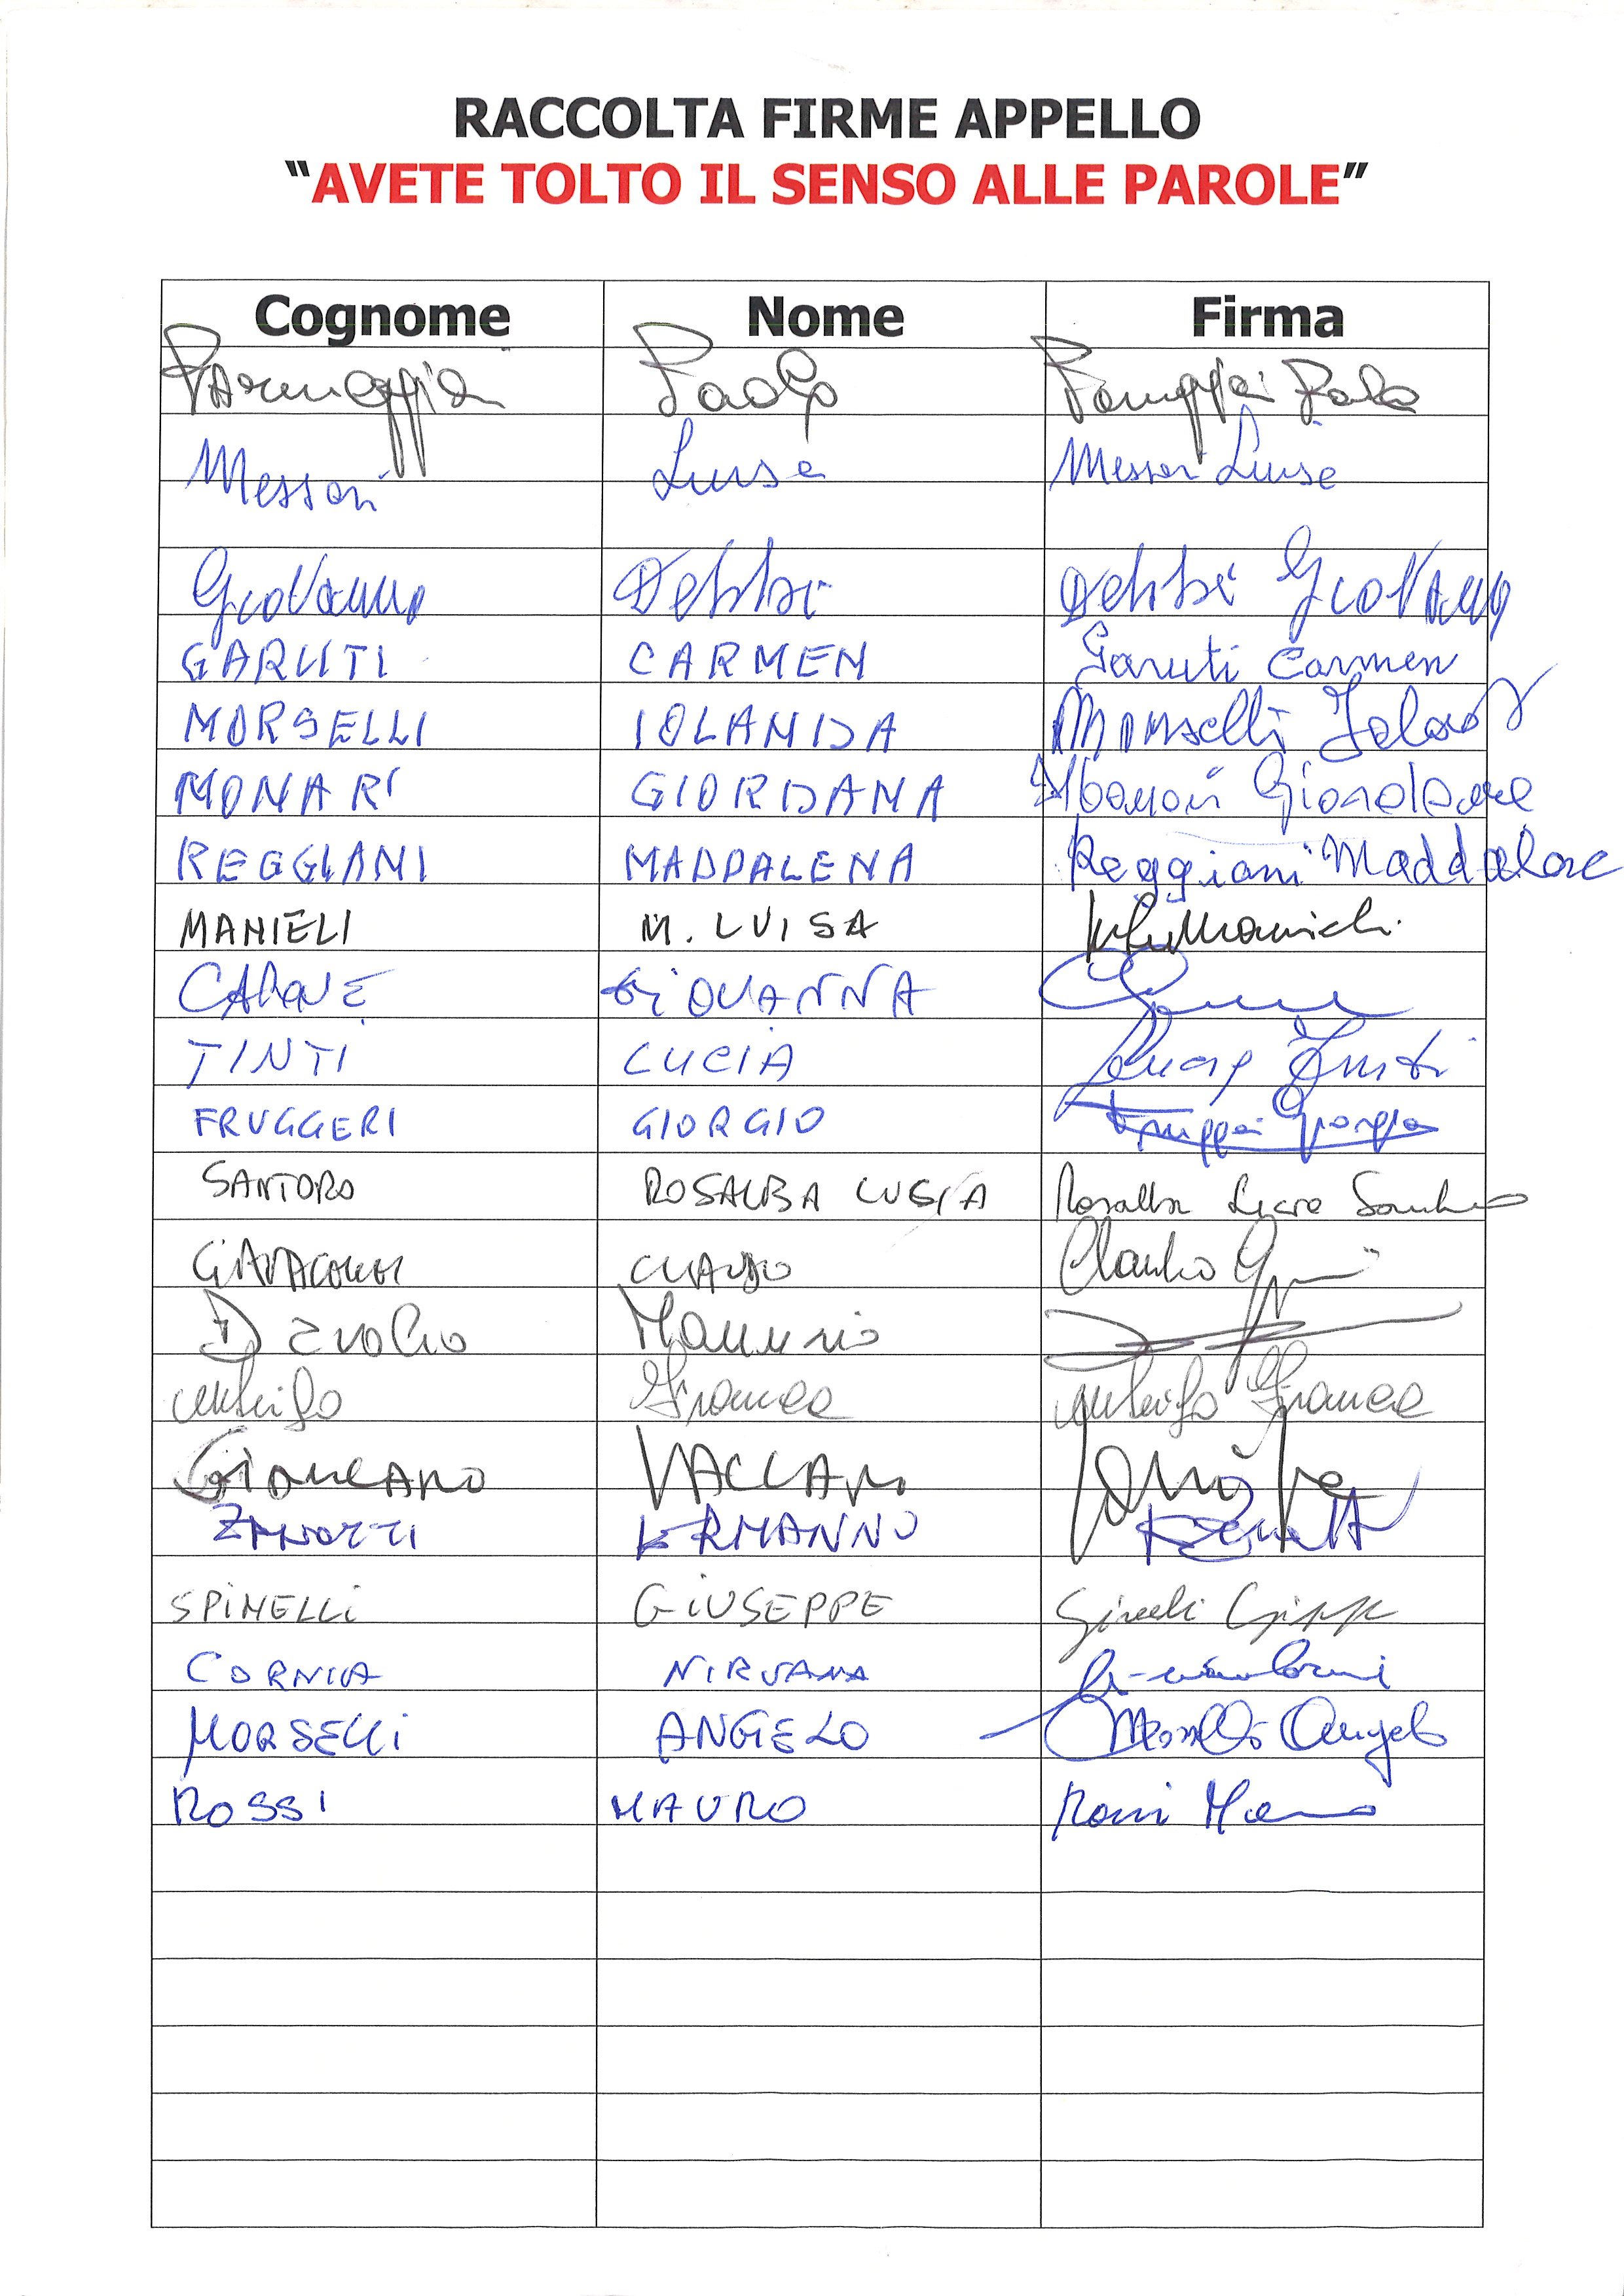 RACCOLTA FIRME APPELLO
“AVETE TOLTO IL SENSO ALLE PAROLE”
Cognome Nome Firma
Parmeggiani Paolo Parmeggiani Paolo
Messori Luisa Messori Luisa
Giovanna Debbi Debbi Giovanna
GARUTI CARMEN Garuti Carmen
MORSELLI IOLANDA Morselli
MONARI GIORDANA Monari Giordana
REGGIANI MADDALENA Reggiani Maddalena
MANIELI M. LUISA
GIOVANNA
TINTI LUCIA Lucia Tinti
FRUGGERI GIORGIO Fruggeri Giorgio
SANTORO ROSALBA LUCIA Rosalba Lucia Santoro
CLAUDIO Claudio
Maurizio
Franca Franca
VACCARO
ZANOTTI ERMANNO
SPINELLI GIUSEPPE Spinelli Giuseppe
CORNIA NIRVANA
MORSELLI ANGELO Morselli Angelo
ROSSI MAURO Rossi Mauro